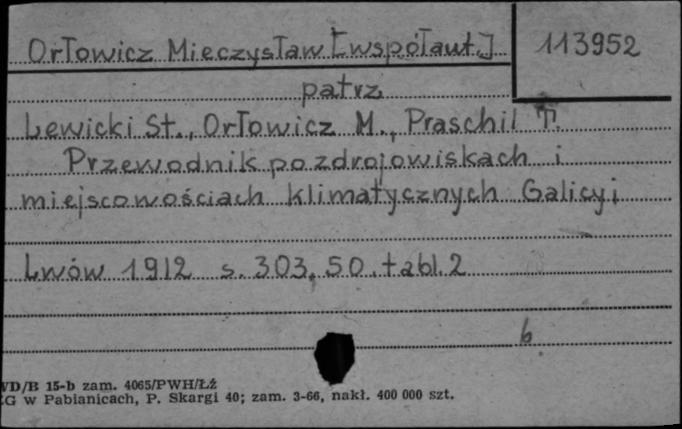 Orłowicz Mieczysław [współaut.] 113952
patrz
Lewicki St., Orłowicz M., Praschil T.
Przewodnik po zdrojowiskach i
miejscowościach klimatycznych Galicyi
Lwów 1912 s. 303, 50. tabl. 2
b
VD/B 15-b zam. 4065/PWH/ŁŻ
ZG w Pabianicach, P. Skargi 40; zam. 3-66, nakł. 400 000 szt.